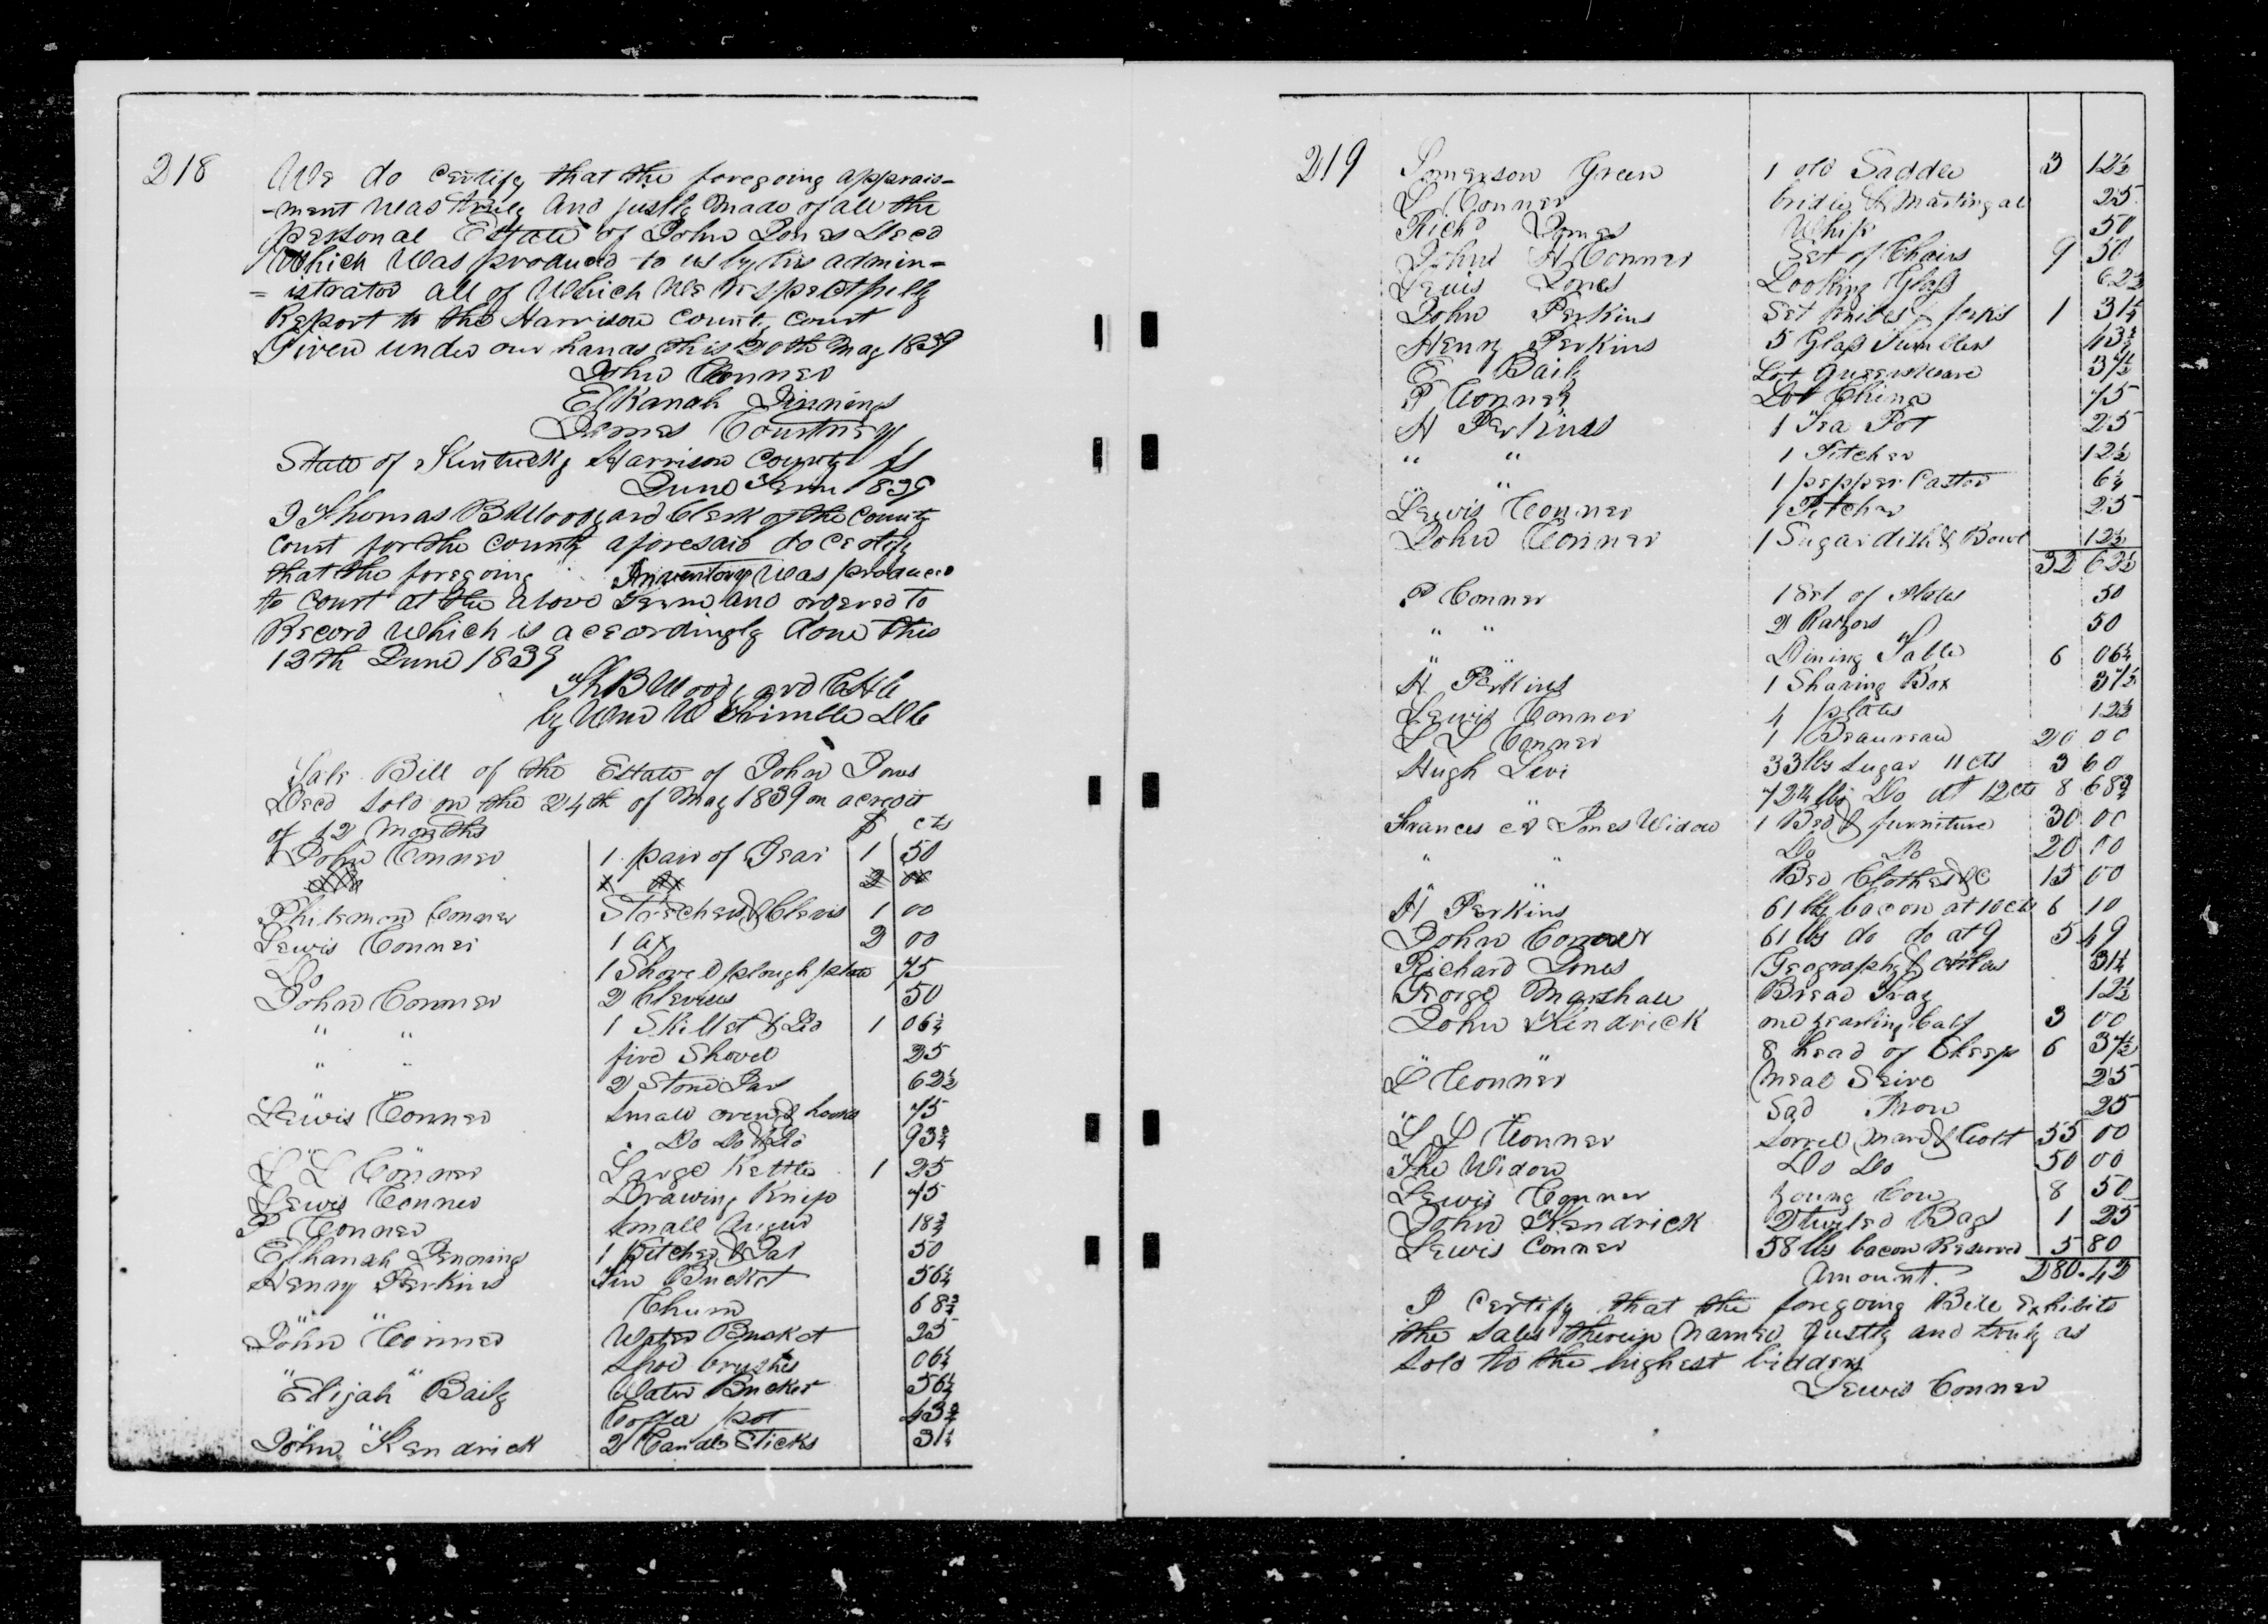 218
We do certify that the foregoing apprais-
-ment was truly and justly made of all the
personal Estate of John Jones Decd
Which was produced to us by his admin-
= istrator all of Which We respectfully
Report to the Harrison county court
Given under our hands this 20th May 1839
John Conner
Elkanah Jinnings
James Courtney
State of Kentucky Harrison County ss
June Term 1839
I Thomas B Woodyard Clerk of the county
court for the county aforesaid do certify
that the foregoing Inventory was produced
to court at the above Term and ordered to
Record Which is accordingly done this
12th June 1839
Th B Woodyard CHC
by Wm W Trimble DC
Sale Bill of the Estate of John Jones
Decd sold on the 24th of May 1839 on a credit
of 12 months $ cts
John Conner 1 pair of Gear 1 50
Do X ax 2 00
Philemon Conner Stretchers & Clevis 1 00
Lewis Conner 1 ax 2 00
Do 1 Shovel plough plate 75
John Conner 2 Clevises 50
" " 1 Skillet & Lid 1 06¼
" " fire Shovel 25
" " 2 Stone Jars 62½
Lewis Conner small oven & hooks 75
" " Do Do & Do 93¾
L L Conner Large Kettle 1 25
Lewis Conner Drawing Knife 75
P Conner small Auger 18¾
Elkanah Jenning 1 Pitcher & Jar 50
Henry Perkins Tin Bucket 56¼
" " Churn 68¾
John Conner Water Bucket 25
" " shoe brushes 06¼
Elijah Baily Water Bucket 56¼
" " Coffee pot 43¾
John Kendrick 2 Candle Sticks 31¼
219
Somerson Green 1 old Saddle 3 12½
L Conner bridle & Martingal 25
Richd Jones Whip 50
John H Conner Set of Chairs 9 50
Lewis Jones Looking Glass 62½
John Perkins Set knives & forks 1 31¼
Henry Perkins 5 Glass Tumblers 43¾
E Baily Lot Queensware 37½
P Conner Lot China 75
H Perkins 1 Tea Pot 25
" " 1 Pitcher 12½
" " 1 pepper Castor 6¼
Lewis Conner 1 Pitcher 25
John Conner 1 Sugar dish & Bowl 12½
32 62½
P Conner 1 Set of Plates 50
" " 2 Razors 50
" " Dining Table 6 06¼
H Perkins 1 Shaving Box 37½
Lewis Conner 4 plates 12½
L L Conner 1 Beaureau 20 00
Hugh Levi 33 lbs sugar 11 cts 3 60
72¼ lbs Do at 12 cts 8 68¾
Frances Jones Widow 1 Bed & furniture 30 00
" " Do Do 20 00
" " Bed Clothes &C 15 00
H Perkins 61 lbs bacon at 10 cts 6 10
John Conner 61 lbs do do at 9 5 49
Richard Jones Geography & atlas 31¼
George Marshall Bread Tray 12½
John Kendrick one yearling Calf 3 00
" " 8 head of Sheep 6 37½
L Conner Meal Seive 25
" " Sad Iron 25
L L Conner Sorrel Mare & Colt 55 00
The Widow Do Do 50 00
Lewis Conner young Cow 8 50
John Kendrick 2 twiled Bags 1 25
Lewis Conner 58 lbs bacon Reserved 5 80
Amount. 280.42
I certify that the foregoing Bill exhibits
the sales therein named justly and truly as
sold to the highest bidders
Lewis Conner